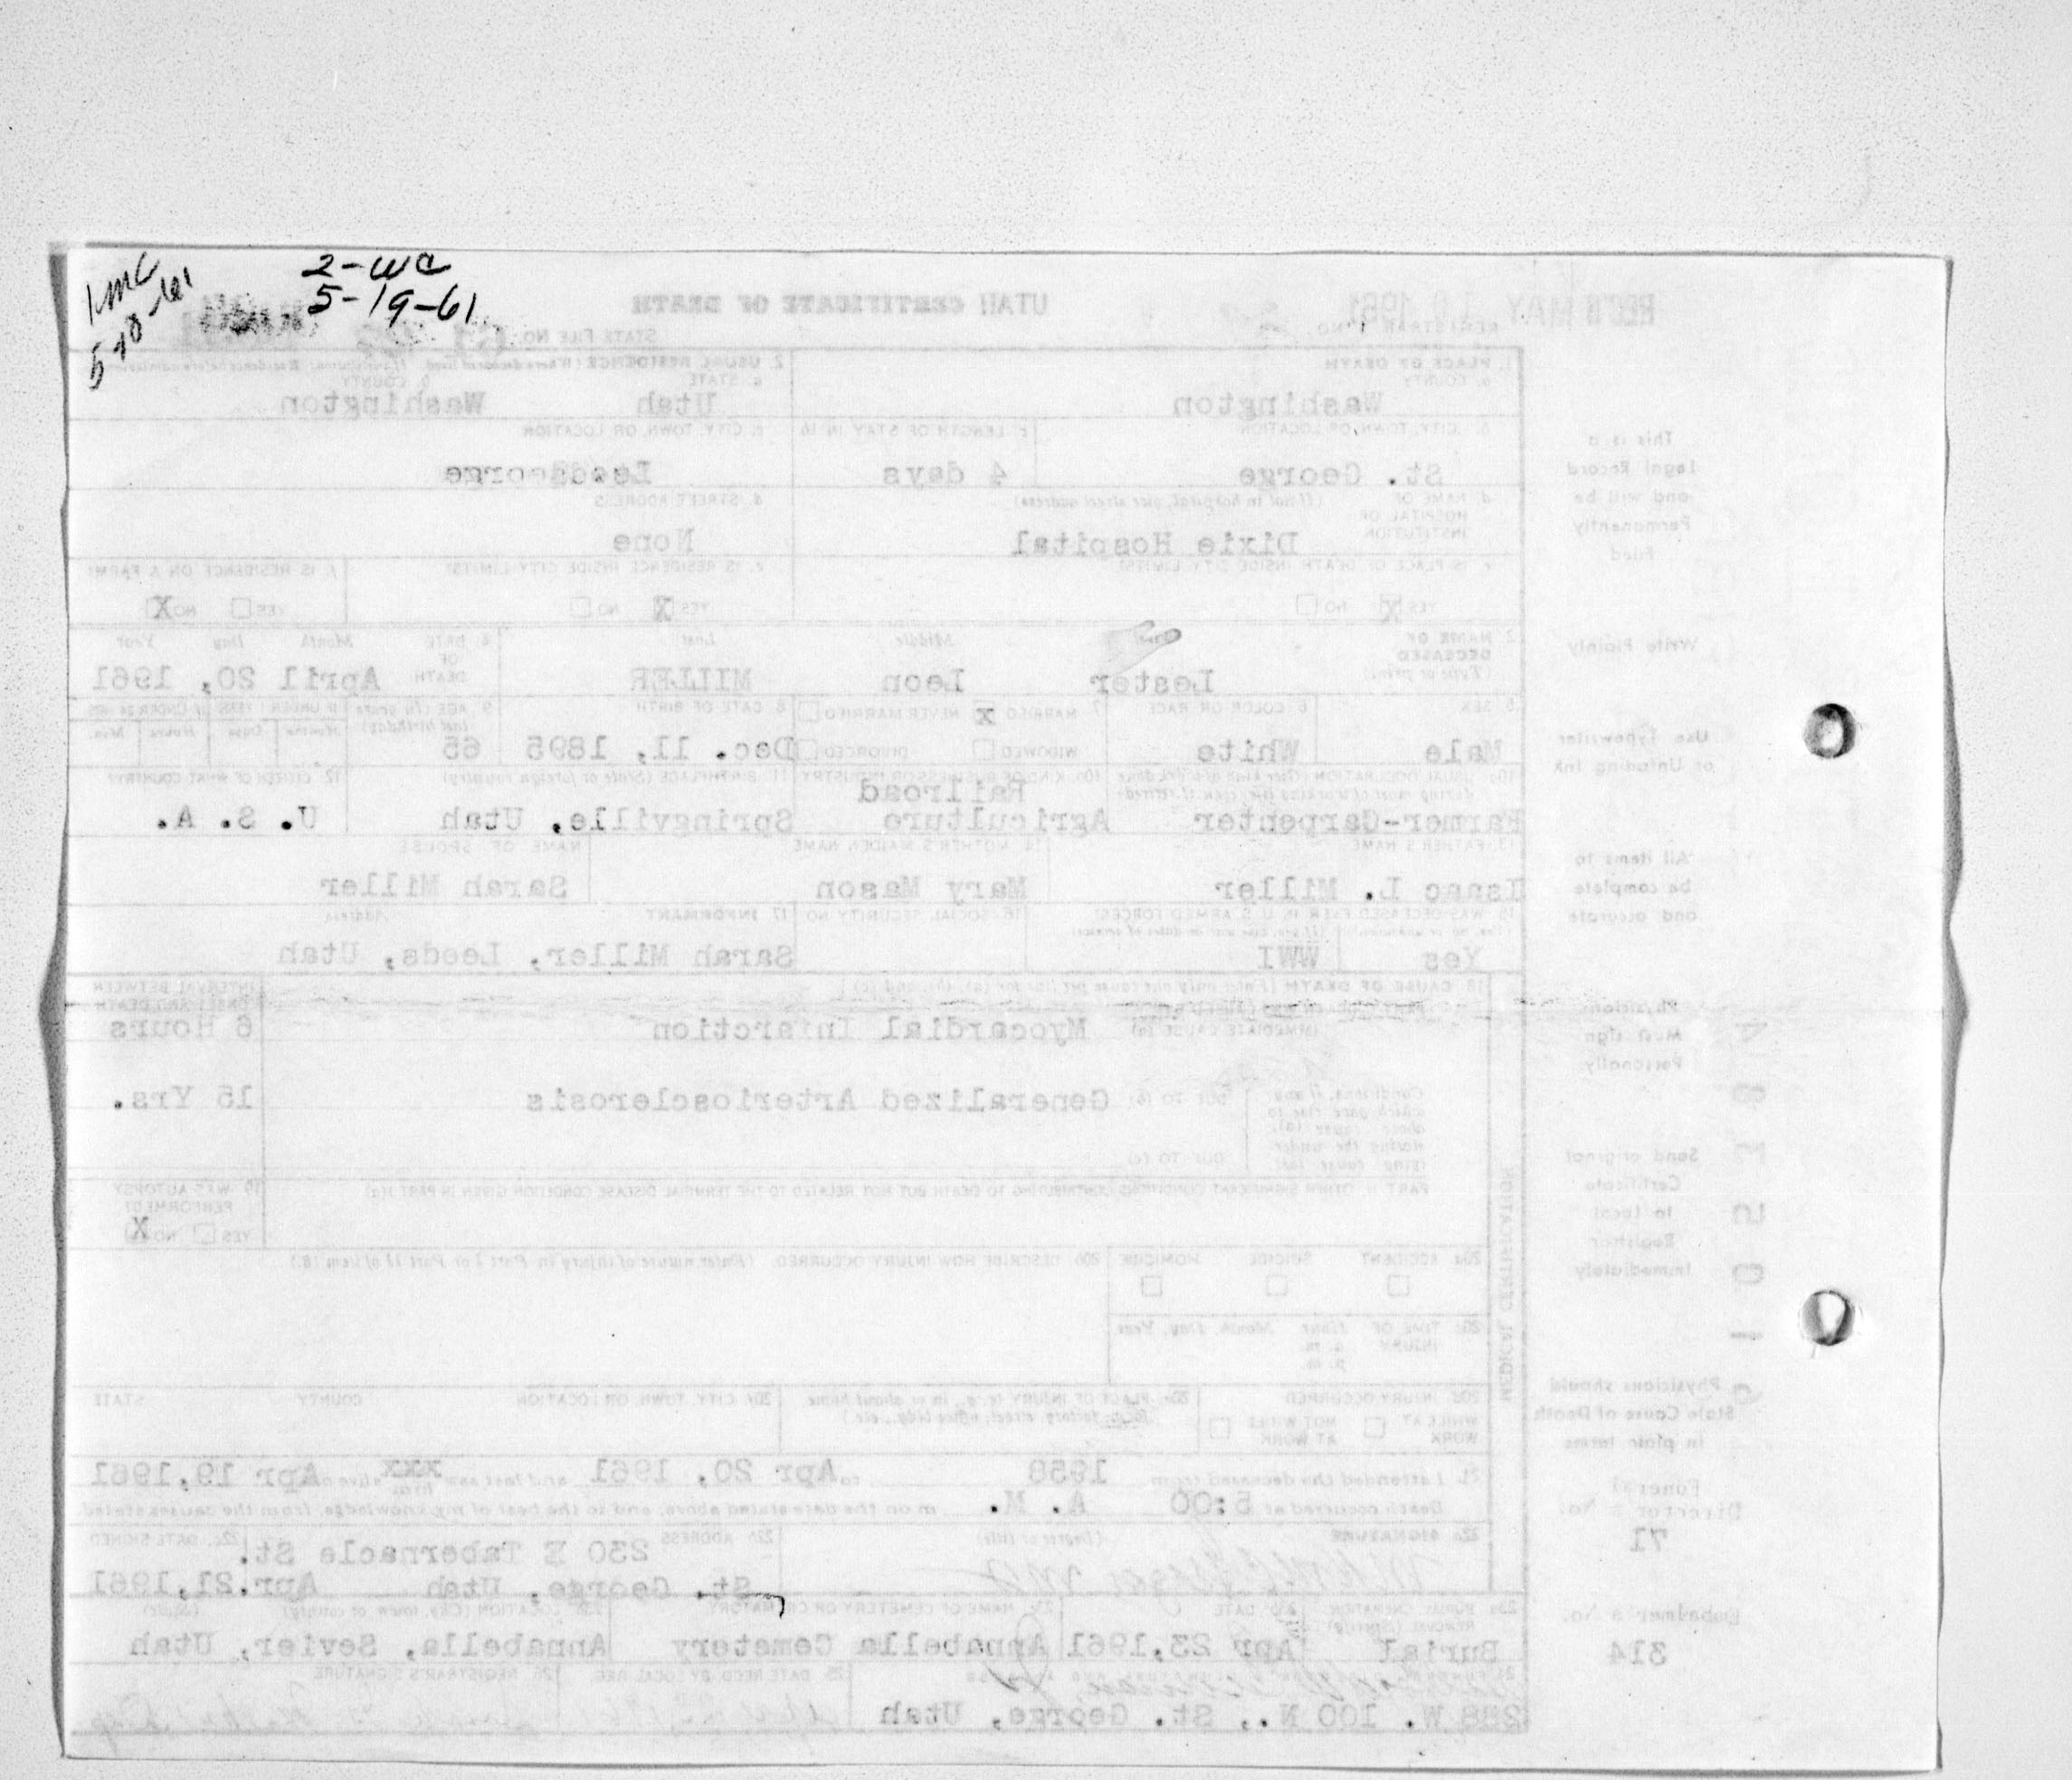 1mC
5-18-61
2-WC
5-19-61
UTAH CERTIFICATE OF DEATH
REC'D MAY 10 1961
REGISTRAR'S NO.
STATE FILE NO. 61
1. PLACE OF DEATH
a. COUNTY
Washington
2. USUAL RESIDENCE (Where deceased lived. If institution: Residence before admission)
a. STATE
Utah
b. COUNTY
Washington
b. CITY, TOWN, OR LOCATION
St. George
c. LENGTH OF STAY IN 1b
4 days
c. CITY, TOWN, OR LOCATION
Leeds
d. NAME OF HOSPITAL OR INSTITUTION (If not in hospital, give street address)
Dixie Hospital
d. STREET ADDRESS
None
e. IS PLACE OF DEATH INSIDE CITY LIMITS?
YES X NO
e. IS RESIDENCE INSIDE CITY LIMITS?
YES X NO
f. IS RESIDENCE ON A FARM?
YES NO X
3. NAME OF DECEASED (Type or print)
First Middle Last
Lester Leon MILLER
4. DATE OF DEATH Month Day Year
April 20, 1961
5. SEX
Male
6. COLOR OR RACE
White
7. MARRIED X NEVER MARRIED
WIDOWED DIVORCED
8. DATE OF BIRTH
Dec. 11, 1895
9. AGE (In years last birthday)
65
IF UNDER 1 YEAR IF UNDER 24 HRS
Months Days Hours Min.
10a. USUAL OCCUPATION (Give kind of work done during most of working life, even if retired)
Farmer-Carpenter
10b. KIND OF BUSINESS OR INDUSTRY
Railroad
Agriculture
11. BIRTHPLACE (State or foreign country)
Springville, Utah
12. CITIZEN OF WHAT COUNTRY?
U. S. A.
13. FATHER'S NAME
Isaac L. Miller
14. MOTHER'S MAIDEN NAME
Mary Mason
NAME OF SPOUSE
Sarah Miller
15. WAS DECEASED EVER IN U. S. ARMED FORCES?
(Yes, no or unknown) (If yes, give war or dates of service)
Yes WWI
16. SOCIAL SECURITY NO.
17. INFORMANT Address
Sarah Miller, Leeds, Utah
18. CAUSE OF DEATH [Enter only one cause per line for (a), (b), and (c)]
INTERVAL BETWEEN ONSET AND DEATH
IMMEDIATE CAUSE (a) Myocardial Infarction
6 Hours
Conditions, if any which gave rise to above cause (a), stating the under- lying cause last
DUE TO (b) Generalized Arteriosclerosis
15 Yrs.
DUE TO (c)
PART II. OTHER SIGNIFICANT CONDITIONS CONTRIBUTING TO DEATH BUT NOT RELATED TO THE TERMINAL DISEASE CONDITION GIVEN IN PART I(a)
19. WAS AUTOPSY PERFORMED?
YES NO X
20a. ACCIDENT SUICIDE HOMICIDE
20b. DESCRIBE HOW INJURY OCCURRED. (Enter nature of injury in Part I or Part II of item 18.)
20c. TIME OF INJURY Hour Month, Day, Year
a. m.
p. m.
20d. INJURY OCCURRED
WHILE AT WORK NOT WHILE AT WORK
20e. PLACE OF INJURY (e.g., in or about home, farm, factory, street, office bldg., etc.)
20f. CITY, TOWN, OR LOCATION COUNTY STATE
21. I attended the deceased from 1958 to Apr 20, 1961 and last saw xxx him alive on Apr 19,1961
Death occurred at 5:00 A. M. m on the date stated above, and to the best of my knowledge, from the causes stated
22a. SIGNATURE (Degree or title)
22b. ADDRESS
230 E Tabernacle St.
St. George, Utah
22c. DATE SIGNED
Apr.21,1961
23a. BURIAL, CREMATION, REMOVAL (Specify)
Burial
23b. DATE
Apr 23,1961
23c. NAME OF CEMETERY OR CREMATORY
Annabella Cemetery
23d. LOCATION (City, town, or county) (State)
Annabella, Sevier, Utah
24. FUNERAL DIRECTOR'S SIGNATURE AND ADDRESS
288 W. 100 N., St. George, Utah
25. DATE RECD BY LOCAL REG.
26. REGISTRAR'S SIGNATURE
MEDICAL CERTIFICATION
This is a
Legal Record
and will be
Permanently
Filed
Write Plainly
Use Typewriter
or Unfading Ink
All items to
be complete
and accurate
Physicians
Must sign
Personally
Send original
Certificate
to Local
Registrar
Immediately
Physicians should
State Cause of Death
in plain terms
Funeral
Director's No.
71
Embalmer's No.
314